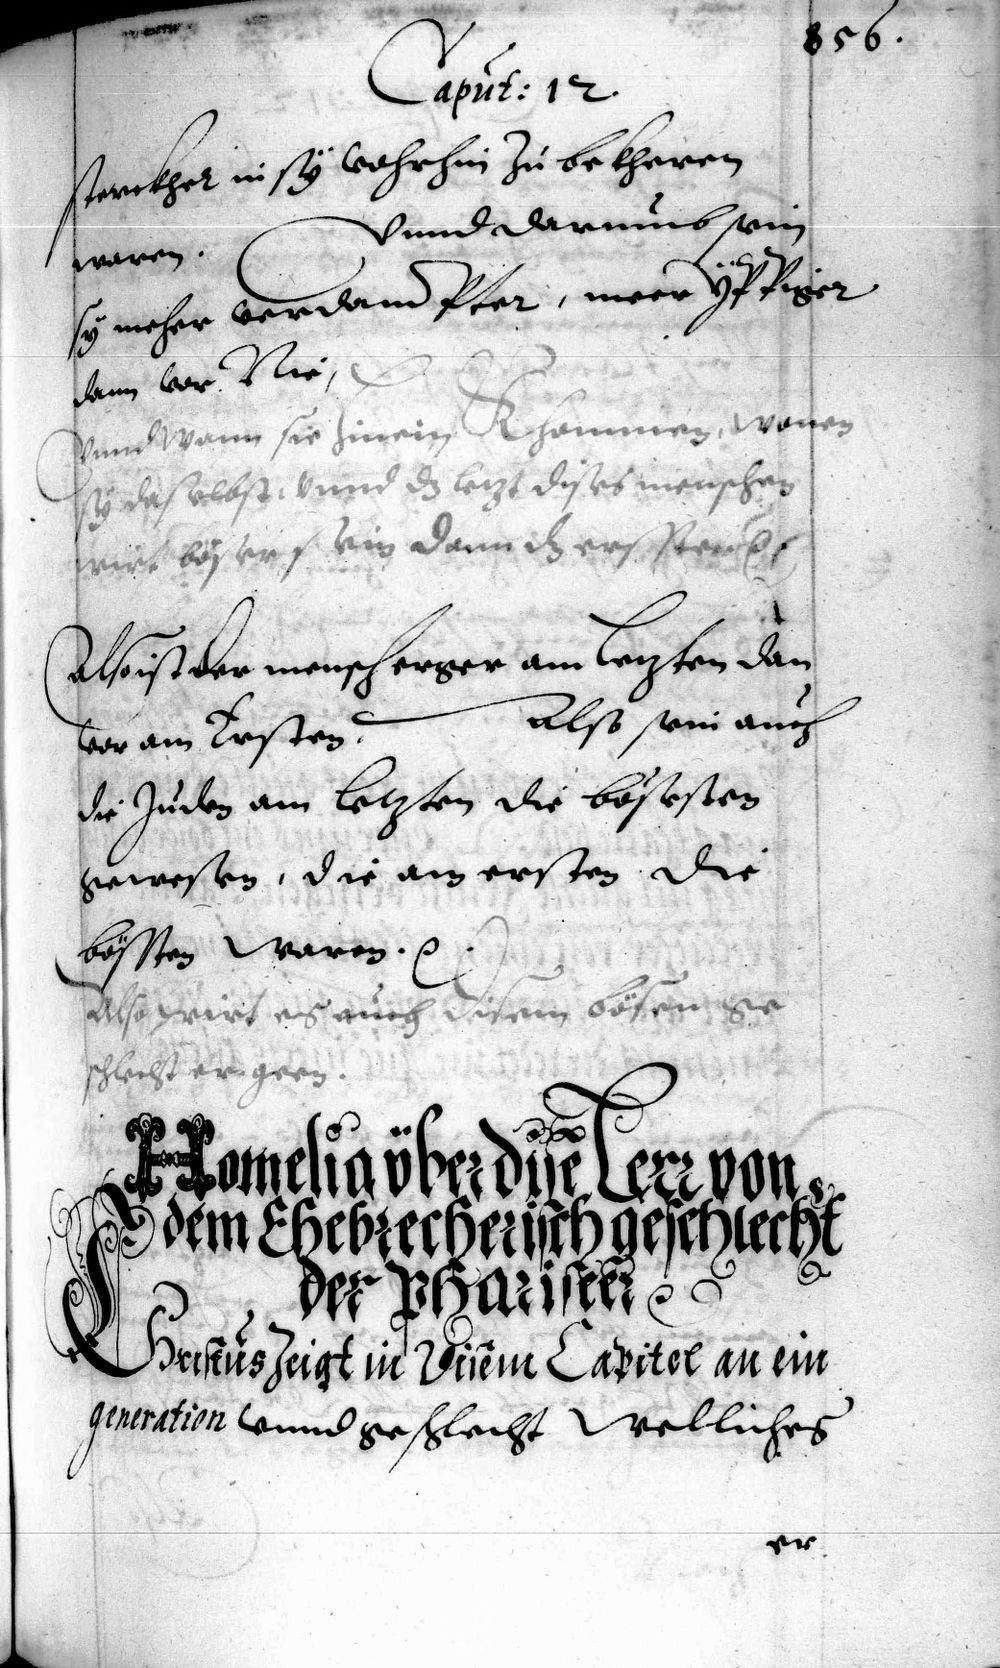 856.
Caput: 12.
sterckher in sÿ Zu bekheren
waren. Vnnd darumb sein
sÿ meher verdampter, meer ÿppiger
dann vor Nie,
Vnnd Wann sie hinein Khommen, wonen
sÿ daselbst, vnnd dz letzt dises menschen
wirt böser sein dann dz ersste
Also ist der mensch erger am Letzten dan
vor am Ersten. Also sein auch
die Juden am letzten die bösesten
gewesen, die am ersten die
bössten waren.
Also wirt es auch disem bösen ge
schlecht ergeen.
Homelia über dise Lerr von
dem Ehebrecherisch geschlecht
der Phariseer
Christus Zeigt in Disem Capitel an ein
generation vnnd geschlecht Welliches
er